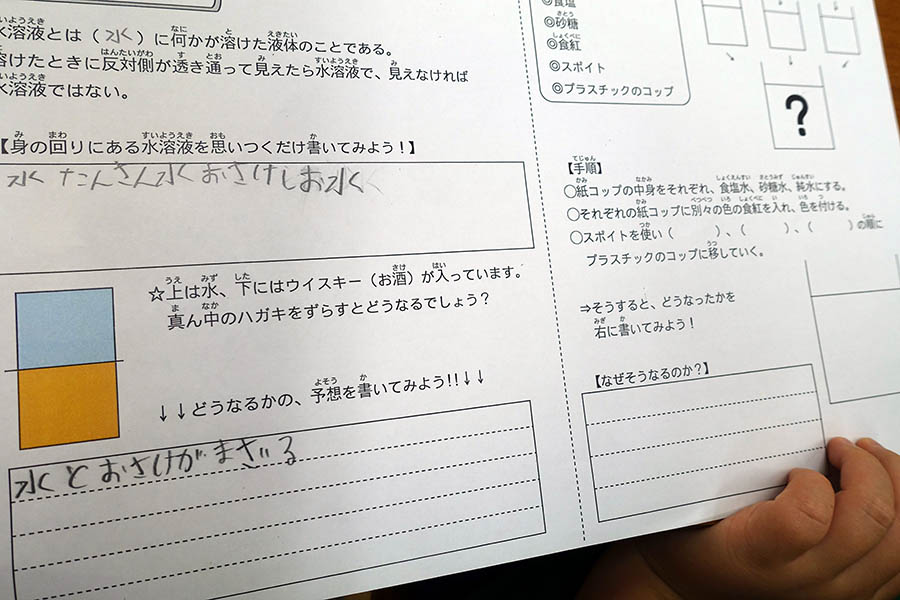 水溶液とは（水）に何かが溶けた液体のことである。
溶けたときに反対側が透き通って見えたら水溶液で、見えなければ
水溶液ではない。
【身の回りにある水溶液を思いつくだけ書いてみよう！】
水 たんさん水 おさけ しお水
☆上は水、下にはウイスキー（お酒）が入っています。
真ん中のハガキをずらすとどうなるでしょう？
↓↓どうなるかの、予想を書いてみよう!!↓↓
水とおさけがまざる
◎食塩
◎砂糖
◎食紅
◎スポイト
◎プラスチックのコップ
?
【手順】
○紙コップの中身をそれぞれ、食塩水、砂糖水、純水にする。
○それぞれの紙コップに別々の色の食紅を入れ、色を付ける。
○スポイトを使い（　　　）、（　　　）、（　　　）の順に
プラスチックのコップに移していく。
⇒そうすると、どうなったかを
右に書いてみよう！
【なぜそうなるのか？】